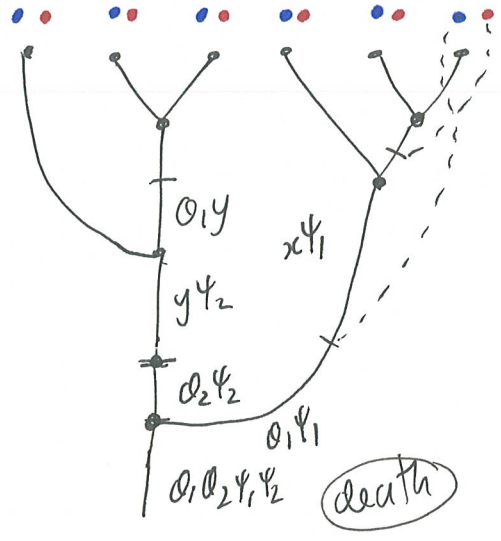 θ₁y
xψ₁
yψ₂
θ₂ψ₂
θ₁ψ₁
θ₁θ₂ψ₁ψ₂
death